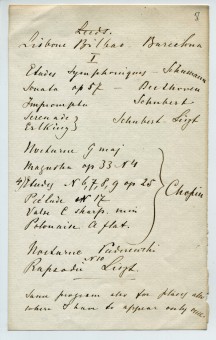 8
Leeds.
Lisbone Bilbao Barcelona
I
Etudes Symphoniques - Schumann
Sonata op 57 - Beethoven
Impromptu Schubert
Serenade }
Erlking } Schubert Liszt
Nocturne G maj
Mazurka op 33 N 4
4 Etudes N 6, 7, 8, 9 op 25
Prélude N 17
Valse C sharp. min
Polonaise A flat.
Chopin
Nocturne Paderewski
Rapsodie N 10 Liszt.
Same program also for places
where I have to appear only once